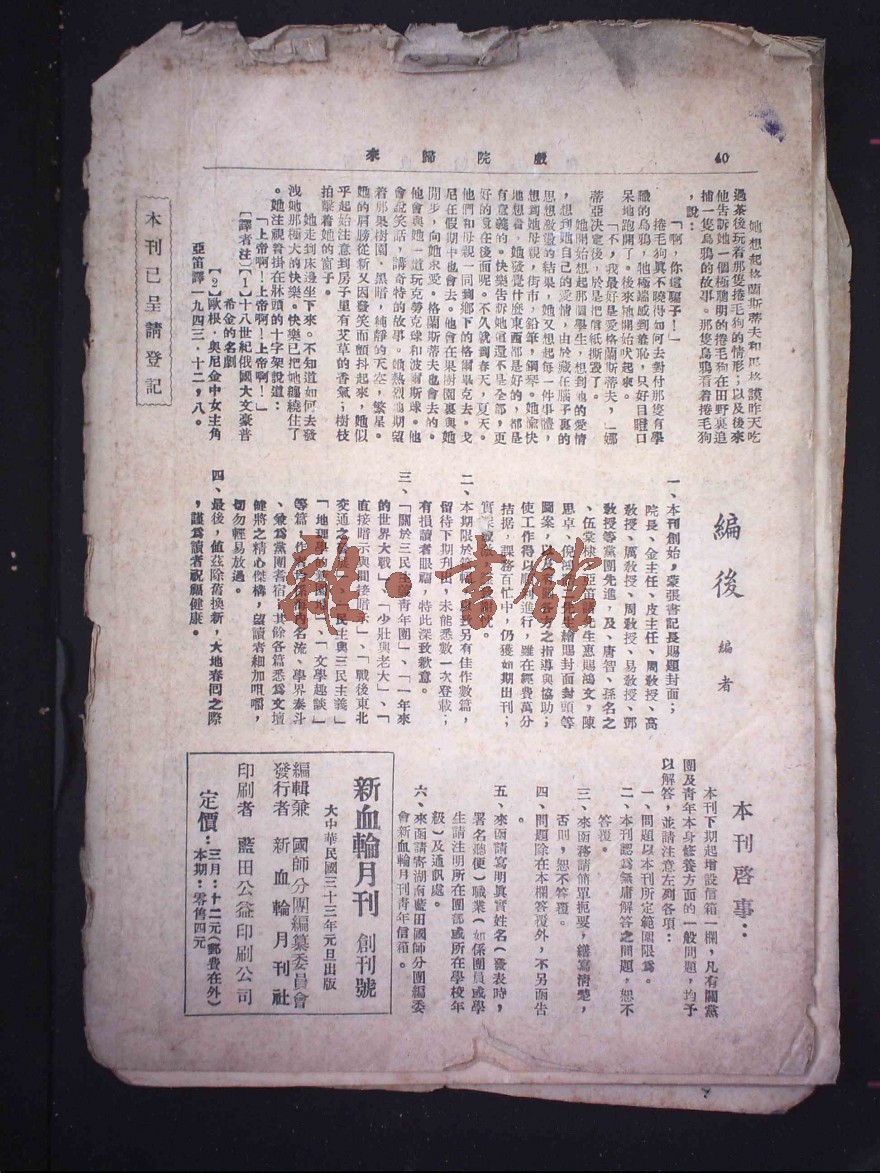 40
戲院歸來
她想起格蘭斯蒂夫和
昨天吃
過茶後玩着那隻捲毛狗的情形；以及後來
他告訴她一個極聰明的捲毛狗在田野裏追
捕一隻烏鴉的故事。那隻烏鴉看着捲毛狗
，說：
「啊，你這騙子！」
捲毛狗眞不曉得如何去對付那隻有學
識的烏鴉，牠極端感到羞恥，只好目瞪口
呆地跑開了。後來牠開始吠起來。
「不，我最好是愛格蘭斯蒂夫，」娜
蒂亞決定後，於是把信紙撕毀了。
她開始想起那個學生，想到他的愛情
，想到她自己的愛情，由於藏在腦子裏的
思想散漫的結果，她又想起每一件事體，
想到她母親，街市，鉛筆，鋼琴。她愉快
地想着，她發覺什麼東西都是好的，都是
有意義的。快樂告訴她這還不是全部，更
好的直在後面呢。不久就到春天，夏天。
他們和母親一同到鄉下的格爾畢克去。戈
尼在假期中也會去。他會在果樹園裏與她
閒步，向她求愛。格蘭斯蒂夫也會去的。
他會與她一道玩克勞克球和波爾斯球。他
會說笑話，講奇特的故事。她熱烈地期望
着那果樹園。黑暗，純靜的天空，繁星。
她的肩膀從新又因發笑而顫抖起來，她似
乎起始注意到房子里有艾草的香氣；樹枝
拍擊着她的窗子。
她走到床邊坐下來。不知道如何去發
洩她那極大的快樂。快樂已把她纏繞住了
。她注視着掛在牀頭的十字架說道：
「上帝啊！上帝啊！上帝啊！」
〔譯者注〕【1】十八世紀俄國大文豪普
希金的名劇
【2】歐根．奧尼金中女主角
亞笛譯一九四三，十二，八。
本刊已呈請登記
編後
編者
一、本刊創始，蒙張書記長賜題封面；
院長、金主任、皮主任、周教授、高
教授、厲教授、周教授、易教授、鄧
教授等黨團先進，及、唐智、孫名之
、伍棠棣、亞笛諸先生惠賜鴻文，陳
思卓、倪
先生繪賜封面封頭等
圖案，以及
之指導與協助；
使工作得以順利進行，雖在經費萬分
拮据，課務百忙中，仍獲如期出刊；
二、本期限於篇幅，
另有佳作數篇，
留待下期刊出，未能悉數一次登載；
有損讀者眼福，特此深致歉意。
三、「關於三民主義青年團」、「一年來
的世界大戰」、「少壯與老大」、「
直接暗示與間接暗示」、「戰後東北
交通之發展」、「民主與三民主義」
「地理學的
」、「文學趣談」
等篇，作者
名流、學界泰斗
、兼爲黨團耆宿，其餘各篇悉爲文壇
健將之精心傑構，望讀者細加咀嚼，
切勿輕易放過。
四、最後，値茲除舊換新，大地春囘之際
，謹爲讀者祝福健康。
本刊啓事：
本刊下期起增設信箱一欄，凡有關黨
團及青年本身修養方面的一般問題，均予
以解答，並請注意左列各項：
一、問題以本刊所定範圍限爲。
二、本刊認爲無庸解答之問題，恕不
答覆。
三、來函務請簡單扼要，繕寫淸楚，
否則，恕不答覆。
四、問題除在本欄答覆外，不另函告
。
五、來函請寫明眞實姓名（發表時，
署名聽便）職業（如係團員或學
生請注明所在團部或所在學校年
級）及通訊處。
六、來函請寄湖南藍田國師分團編委
會新血輪月刊青年信箱。
新血輪月刊 創刊號
大中華民國三十三年元旦出版
編輯兼 國師分團編纂委員會
發行者 新血輪月刊社
印刷者 藍田公益印刷公司
定價：三月：十二元（郵費在外）
本期：零售四元